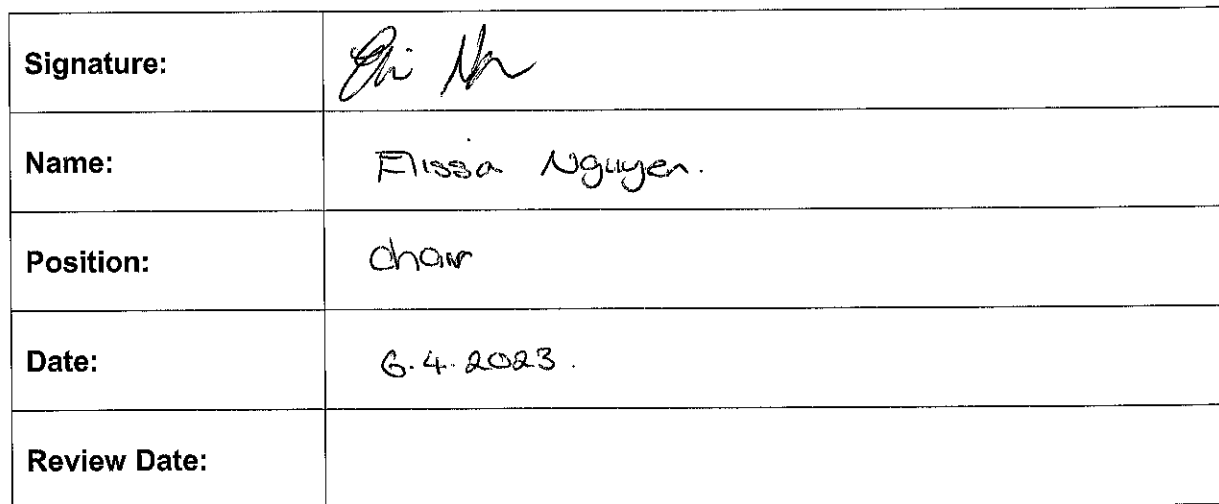 Signature:
Name: Elissa Nguyen.
Position: Chair
Date: 6.4.2023.
Review Date: